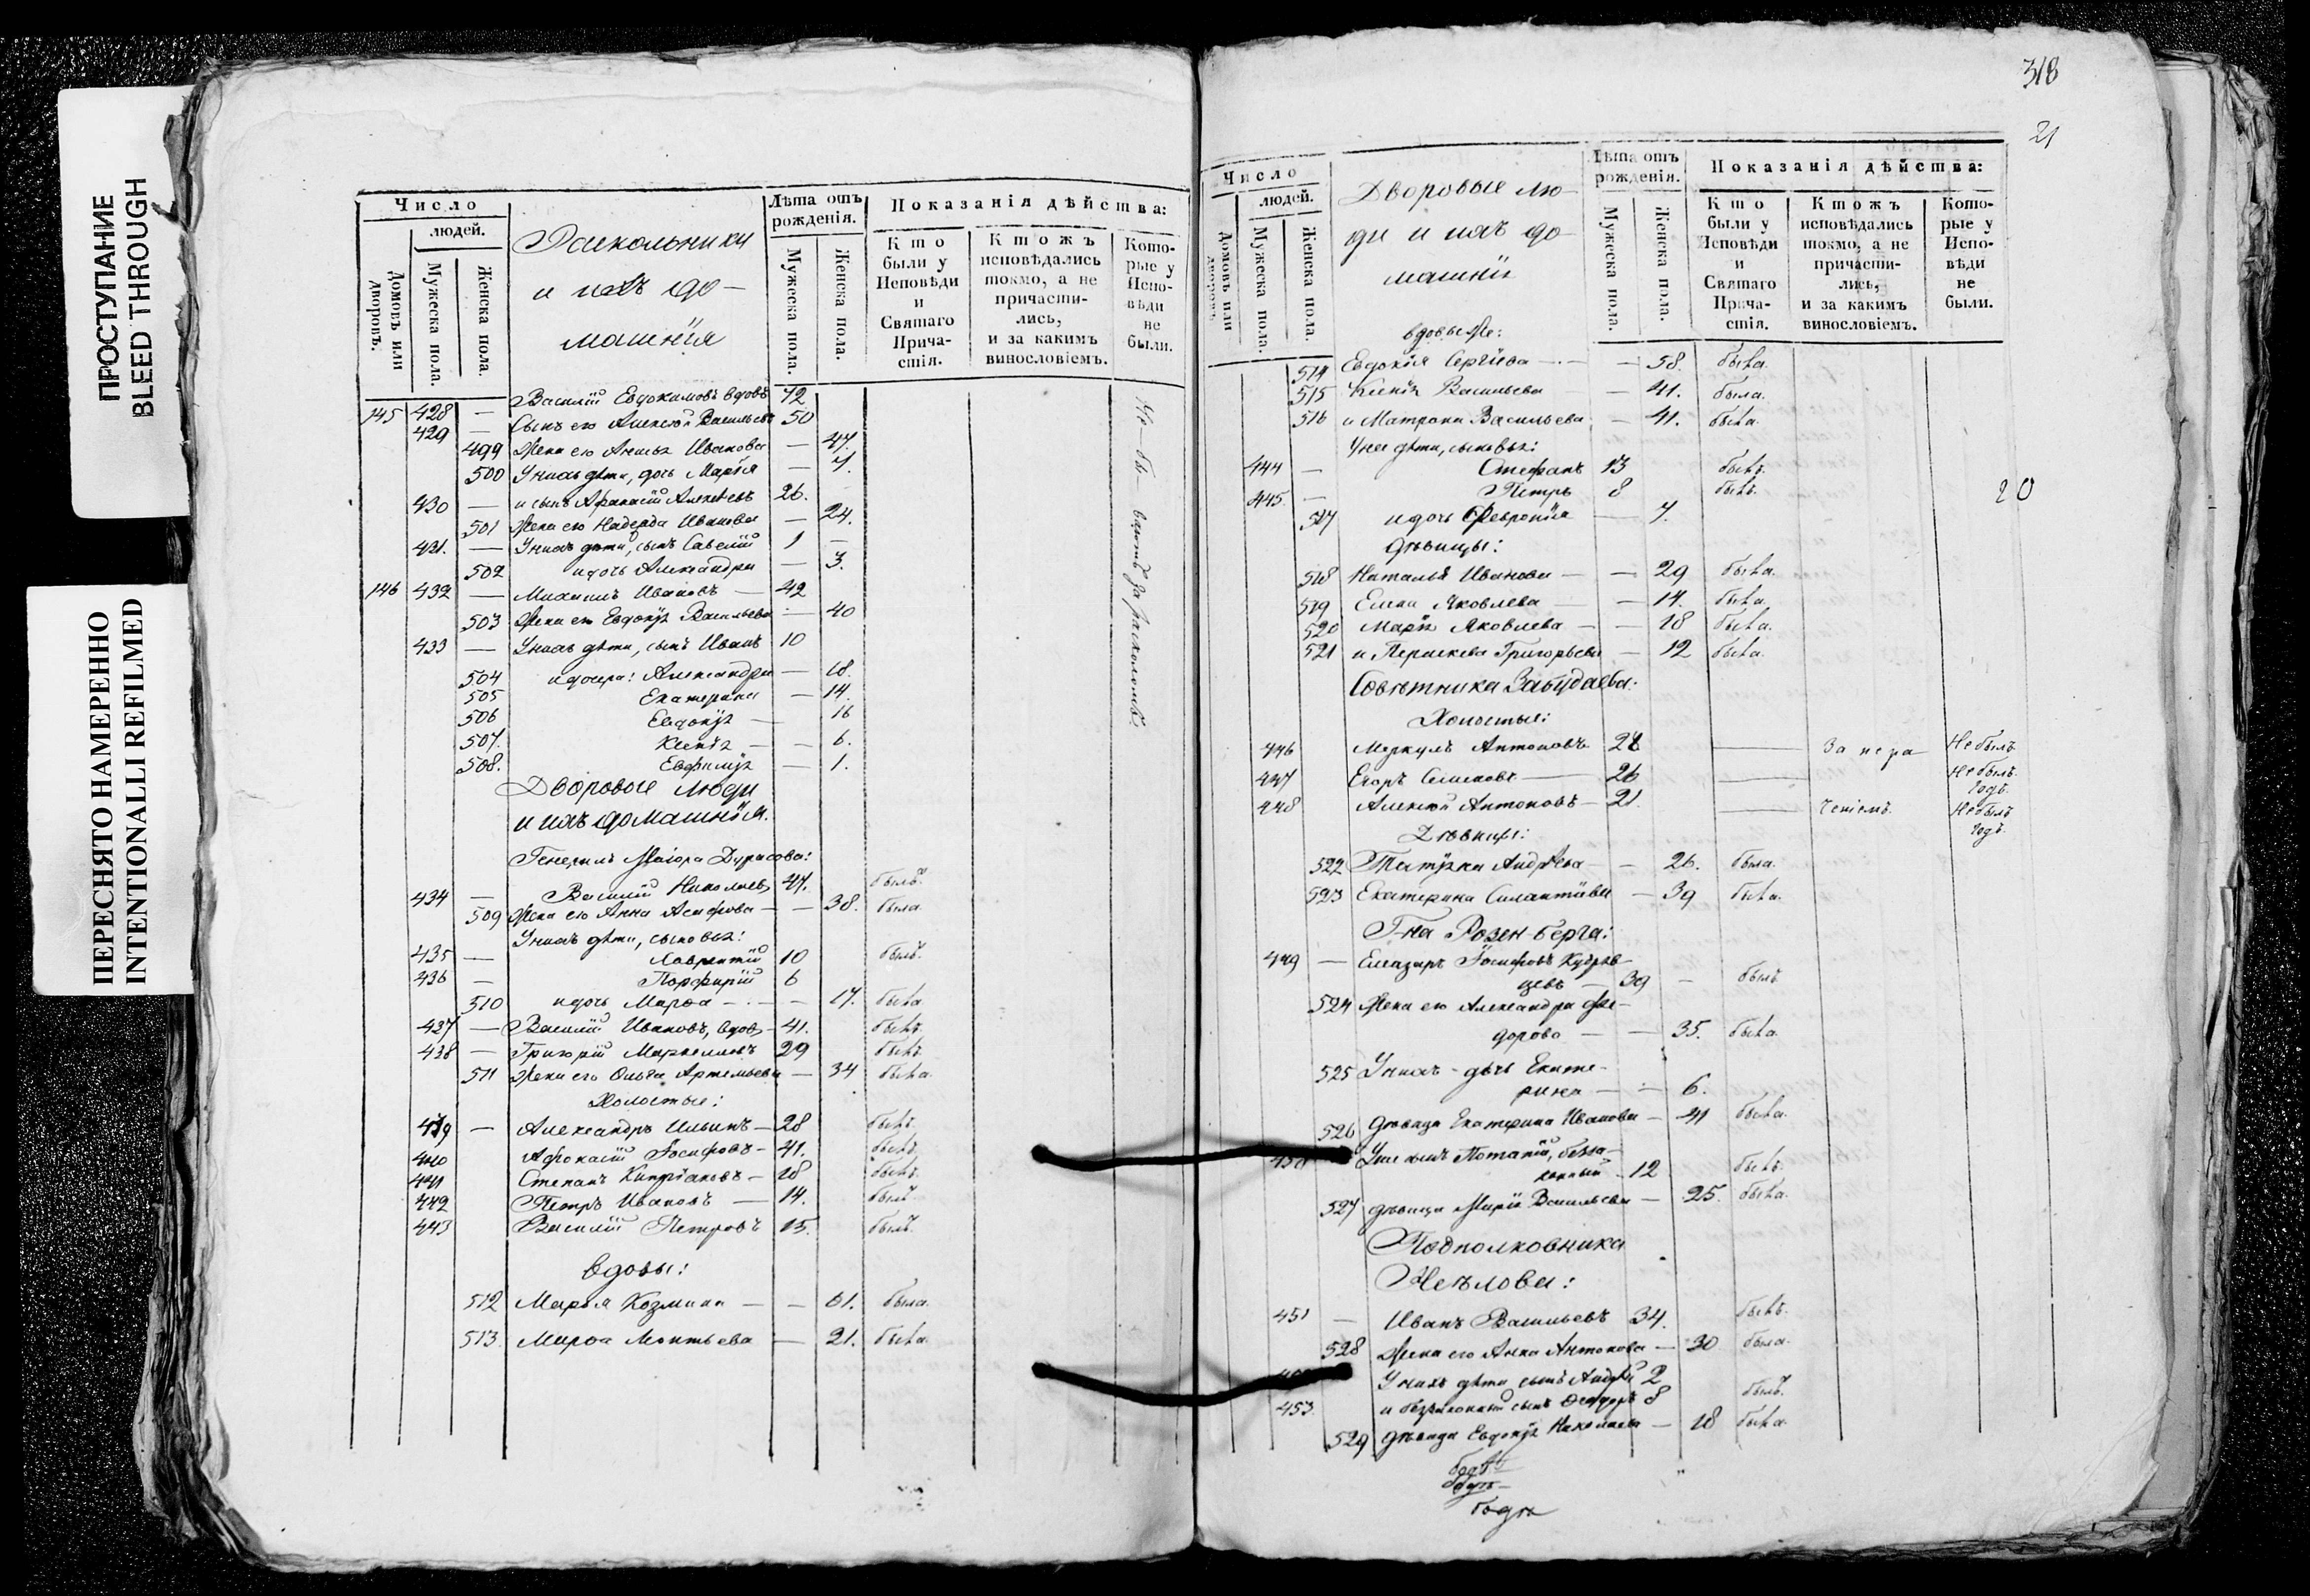 ПРОСТУПАНИЕ
BLEED THROUGH
ПЕРЕСНЯТО НАМЕРЕННО
INTENTIONALLI REFILMED
Число
людей.
Домовъ или дворовъ.
Мужеска пола.
Женска пола.
Раскольники
и ихъ до-
машнія
Лѣта отъ рожденія.
Мужеска пола.
Женска пола.
Показанія дѣйства:
Кто были у Исповѣди и Святаго Прича-стія.
Ктожъ исповѣдались токмо, а не причасти-лись, и за какимъ винословіемъ.
Кото-рые у Испо-вѣди не были.
145 428 — Василій Евдокимовъ вдовъ 72
429 — Сынъ его Алексѣй Васильевъ 50
499 Жена его Анисья Иванова — 47.
500 У нихъ дѣти, дочь Марья — 7.
430 — и сынъ Афанасій Алексѣевъ 26.
501 Жена его Надежда Иванова — 24.
431. — У нихъ дѣти, сынъ Савелій 1 —
502 и дочь Александра — 3.
146 432 — Михаилъ Ивановъ — 42
503 Жена ею Евдокія Васильева — 40
433 — У нихъ дѣти, сынъ Иванъ 10
504 и дочери: Александра — 18.
505 Екатерина — 14.
506 Евдокія — 16
507. Ксенія — — 6.
508. Евфимія — 1.
за расколомъ.
Дворовые люди
и ихъ домашнія.
Генералъ Маіора Дурасова:
434 — Василій Николаевъ 47. былъ.
509 Жена его Анна Асафова — — 38. была
У нихъ дѣти, сыновья:
435 — Лаврентій 10 былъ.
436 — Порфирій 6
510 и дочь Марфа — — 17. была
437 — Василій Ивановъ, вдовъ — 41. былъ.
438 — Григорій Маркелловъ 29 былъ
511 Жена его Ольга Артемьева — 34 была.
Холостые:
439 — Александръ Ильинъ — 28 былъ.
440 Афонасій Іосифовъ — 41. былъ.
441 Степанъ Кипріановъ — 18 былъ.
442 Петръ Ивановъ — 14. былъ
443 Василій Петровъ 15. былъ.
вдовы:
512 Марья Козмина — — 61. была.
513. Марфа Леонтьева — 21. была
318
21
Число
людей.
Домовъ или дворовъ.
Мужеска пола.
Женска пола.
Дворовые лю-
ди и ихъ до-
машніи
Лѣта отъ рожденія.
Мужеска пола.
Женска пола.
Показанія дѣйства:
Кто были у Исповѣди и Святаго Прича-стія.
Ктожъ исповѣдались токмо, а не причасти-лись, и за какимъ винословіемъ.
Кото-рые у Испо-вѣди не были.
вдовы же:
514 Евдокія Сергіева — — 58. была.
515 Ксенія Васильева — 41. была.
516 и Матрона Васильева — 41. была.
У нея дѣти, сыновья:
444 — Стефанъ 13 былъ.
445. — Петръ 8 былъ.
20
517 и дочь Февронія — 7.
дѣвицы:
518 Наталья Иванова — — 29 была.
519 Елена Яковлева — 14. была.
520 Марія Яковлева — — 18 была.
521 и Параскева Григорьева — 12 была.
Совѣтника Забудаева:
Холостые:
446 Меркулъ Антоновъ 28 — За нера Не былъ
447 Егоръ — 26 — Не былъ.
годъ.
448 Алексѣй Антоновъ — 21. — ченіемъ. Не былъ
годъ.
Дѣвицы:
522 Татьяна Андрѣева — 26. была.
523 Екатерина Силантіева — 39 была.
Г-на Розен-берга:
449 — Елеазаръ Іосифовъ
— 39 — былъ
524 Жена его Александра Фе-
дорова — — 35. была.
525 У нихъ — дочь Екате-
рина — — 6.
526 дѣвица Екатерина Иванова — 41 была.
450
— 12 былъ.
527 дѣвица Марія Васильева — 25. была.
Подполковника
Неѣлова:
451 — Иванъ Васильевъ 34. былъ.
528 Жена его Анна Антонова — 30 была.
У нихъ дѣти сынъ Андрей 2
453. и сынъ Ѳедоръ 8 былъ.
529 дѣвица Евдокія Николаева — 18 была.